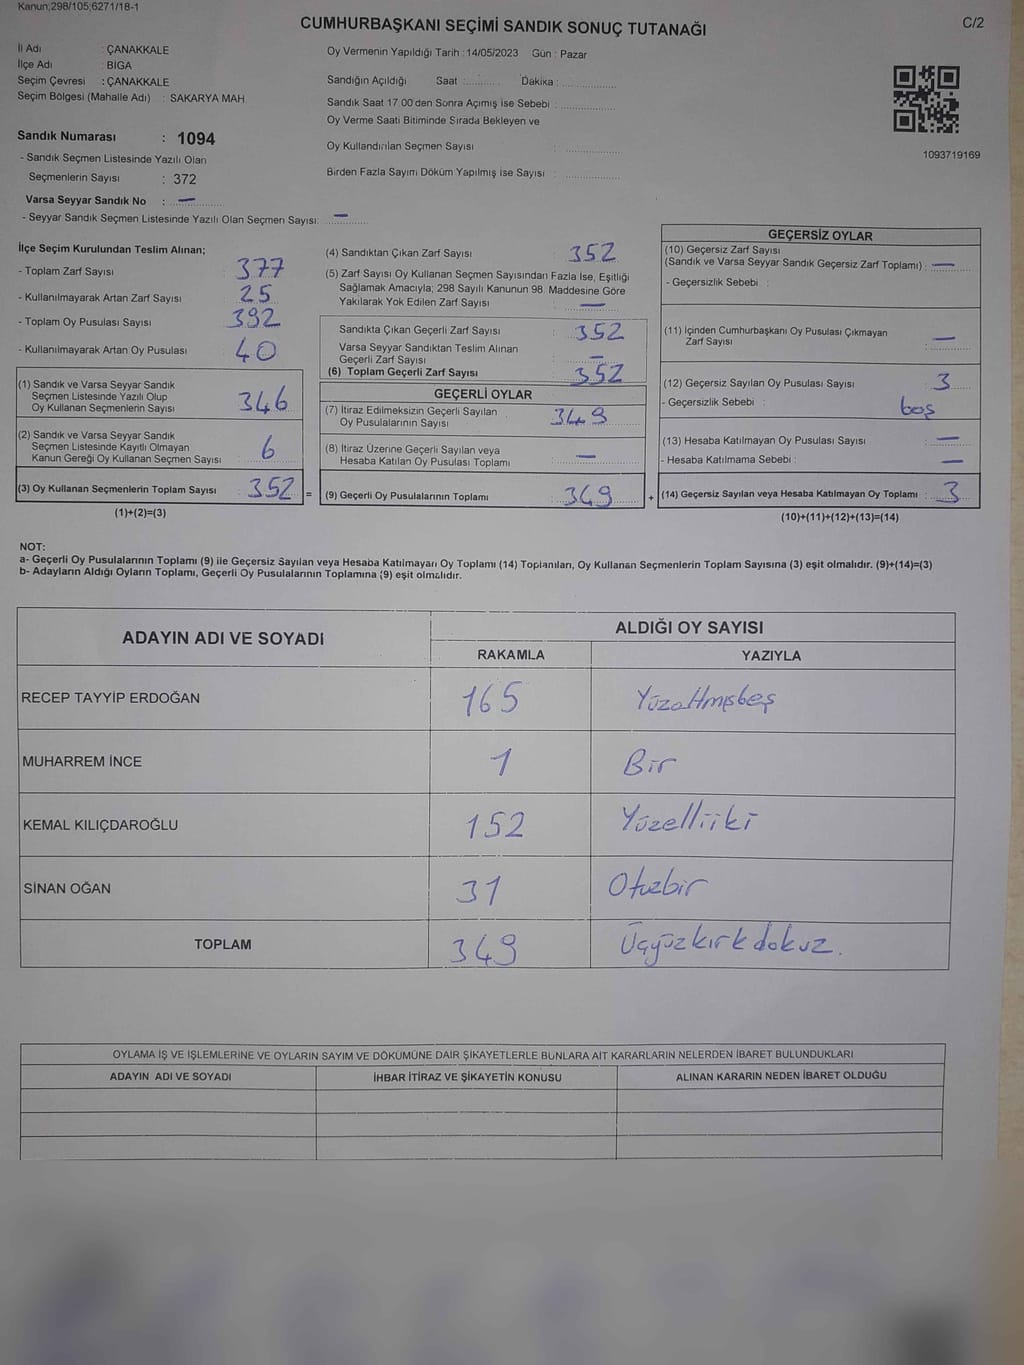 Kanun;298/105;6271/18-1
CUMHURBAŞKANI SEÇİMİ SANDIK SONUÇ TUTANAĞI
C/2
İl Adı : ÇANAKKALE
İlçe Adı : BİGA
Seçim Çevresi : ÇANAKKALE
Seçim Bölgesi (Mahalle Adı) : SAKARYA MAH
Sandık Numarası : 1094
- Sandık Seçmen Listesinde Yazılı Olan
Seçmenlerin Sayısı : 372
Varsa Seyyar Sandık No : —
- Seyyar Sandık Seçmen Listesinde Yazılı Olan Seçmen Sayısı: —
Oy Vermenin Yapıldığı Tarih : 14/05/2023 Gün : Pazar
Sandığın Açıldığı Saat :.......... Dakika :................
Sandık Saat 17.00'den Sonra Açımış İse Sebebi :...............
Oy Verme Saati Bitiminde Sırada Bekleyen ve
Oy Kullandırılan Seçmen Sayısı : ...............
Birden Fazla Sayım Döküm Yapılmış ise Sayısı : ...............
1093719169
İlçe Seçim Kurulundan Teslim Alınan;
- Toplam Zarf Sayısı 377
- Kullanılmayarak Artan Zarf Sayısı 25
- Toplam Oy Pusulası Sayısı 392
- Kullanılmayarak Artan Oy Pusulası 40
(1) Sandık ve Varsa Seyyar Sandık
Seçmen Listesinde Yazılı Olup
Oy Kullanan Seçmenlerin Sayısı 346
(2) Sandık ve Varsa Seyyar Sandık
Seçmen Listesinde Kayıtlı Olmayan
Kanun Gereği Oy Kullanan Seçmen Sayısı 6
(3) Oy Kullanan Seçmenlerin Toplam Sayısı 352 =
(1)+(2)=(3)
(4) Sandıktan Çıkan Zarf Sayısı 352
(5) Zarf Sayısı Oy Kullanan Seçmen Sayısından Fazla İse, Eşitliği
Sağlamak Amacıyla; 298 Sayılı Kanunun 98. Maddesine Göre
Yakılarak Yok Edilen Zarf Sayısı : —
Sandıkta Çıkan Geçerli Zarf Sayısı : 352
Varsa Seyyar Sandıktan Teslim Alınan
Geçerli Zarf Sayısı : —
(6) Toplam Geçerli Zarf Sayısı : 352
GEÇERLİ OYLAR
(7) İtiraz Edilmeksizin Geçerli Sayılan
Oy Pusulalarının Sayısı 349
(8) İtiraz Üzerine Geçerli Sayılan veya
Hesaba Katılan Oy Pusulası Toplamı : —
(9) Geçerli Oy Pusulalarının Toplamı : 349 +
GEÇERSİZ OYLAR
(10) Geçersiz Zarf Sayısı
(Sandık ve Varsa Seyyar Sandık Geçersiz Zarf Toplamı) : —
- Geçersizlik Sebebi :
(11) İçinden Cumhurbaşkanı Oy Pusulası Çıkmayan
Zarf Sayısı : —
(12) Geçersiz Sayılan Oy Pusulası Sayısı : 3
- Geçersizlik Sebebi : boş
(13) Hesaba Katılmayan Oy Pusulası Sayısı : —
- Hesaba Katılmama Sebebi : —
(14) Geçersiz Sayılan veya Hesaba Katılmayan Oy Toplamı : 3
(10)+(11)+(12)+(13)=(14)
NOT:
a- Geçerli Oy Pusulalarının Toplamı (9) ile Geçersiz Sayılan veya Hesaba Katılmayan Oy Toplamı (14) Toplanılan, Oy Kullanan Seçmenlerin Toplam Sayısına (3) eşit olmalıdır. (9)+(14)=(3)
b- Adayların Aldığı Oyların Toplamı, Geçerli Oy Pusulalarının Toplamına (9) eşit olmalıdır.
ADAYIN ADI VE SOYADI
ALDIĞI OY SAYISI
RAKAMLA YAZIYLA
RECEP TAYYİP ERDOĞAN 165 Yüzaltmışbeş
MUHARREM İNCE 1 Bir
KEMAL KILIÇDAROĞLU 152 Yüzelliiki
SİNAN OĞAN 31 Otuzbir
TOPLAM 349 Üçyüzkırkdokuz.
OYLAMA İŞ VE İŞLEMLERİNE VE OYLARIN SAYIM VE DÖKÜMÜNE DAİR ŞİKAYETLERLE BUNLARA AİT KARARLARIN NELERDEN İBARET BULUNDUKLARI
ADAYIN ADI VE SOYADI İHBAR İTİRAZ VE ŞİKAYETİN KONUSU ALINAN KARARIN NEDEN İBARET OLDUĞU